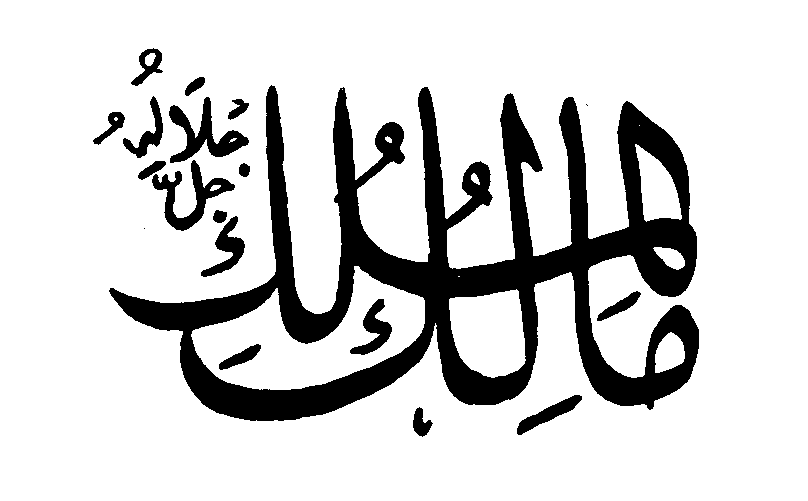 مَالِكُ الْمُلْكِ
جَلَّ جَلَالُهُ